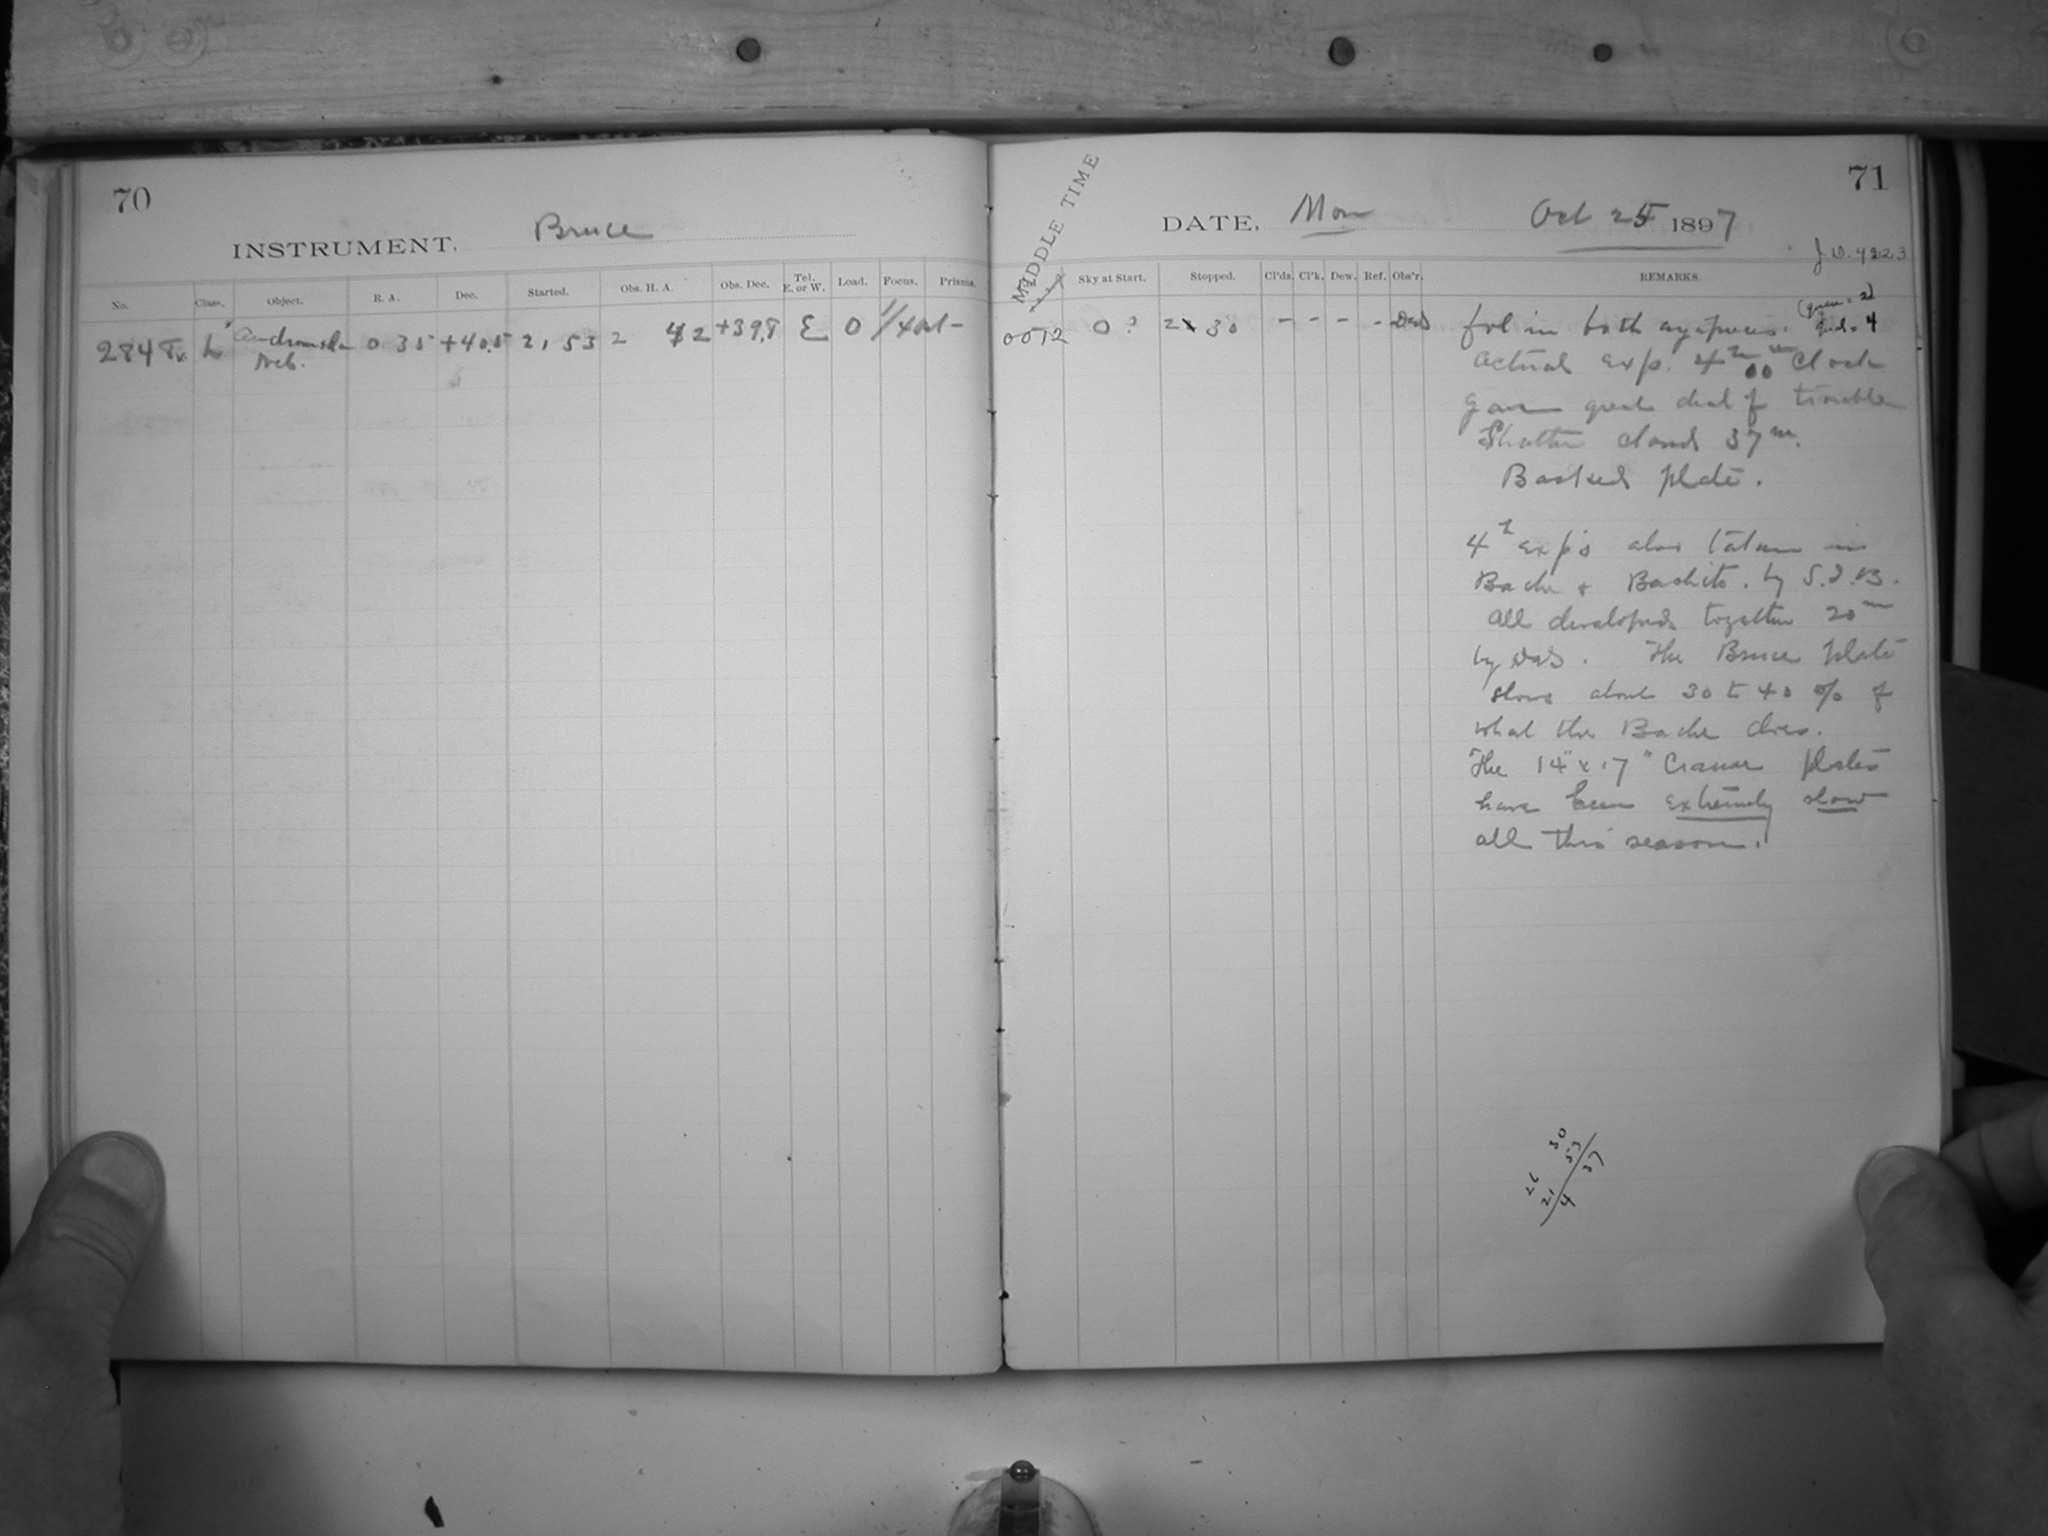 70
INSTRUMENT, Bruce
No. Class. Object. R. A. Dec. Started. Obs. H. A. Obs. Dec. Tel. E. or W. Load. Focus. Prisms.
2848 L Andromeda 0 35 +40.5 21 53 2 42 +39.8 E 0
Neb.
71
MIDDLE TIME
DATE, Mon Oct 25 1897
J.D. 4223
Sky at Start. Stopped. Cl'ds. Cl'k. Dew. Ref. Obs'r. REMARKS.
0012 0 ? 2 30 - - - -
fol in both (quar = 2)
quad = 4
Actual Exp. 4h 00m Clock
gave great deal of trouble
Shutter closed 37m.
Backed plate.
4h exp's also taken in
Bache & Bachito. by
All developed together 20m
by The Bruce plate
shows about 30 to 40 % of
what the Bache does.
The 14" x 17" Cramer plates
have been extremely slow
all this season.
26 30
21 53
4 37